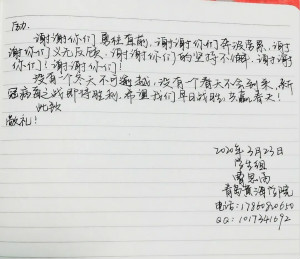 励,
谢谢你们勇往直前,谢谢你们奔波劳累,谢
谢你们义无反顾,谢谢你们的坚持不懈,谢谢
你们!谢谢你们!
没有一个冬天不可逾越,没有一个春天不会到来,新
冠病毒之战即将胜利,希望我们早日战胜,共赢春天!
此致
敬礼!
2020年3月23日
学生组
曹思雨
青岛黄海学院
电话:
QQ:1017341692